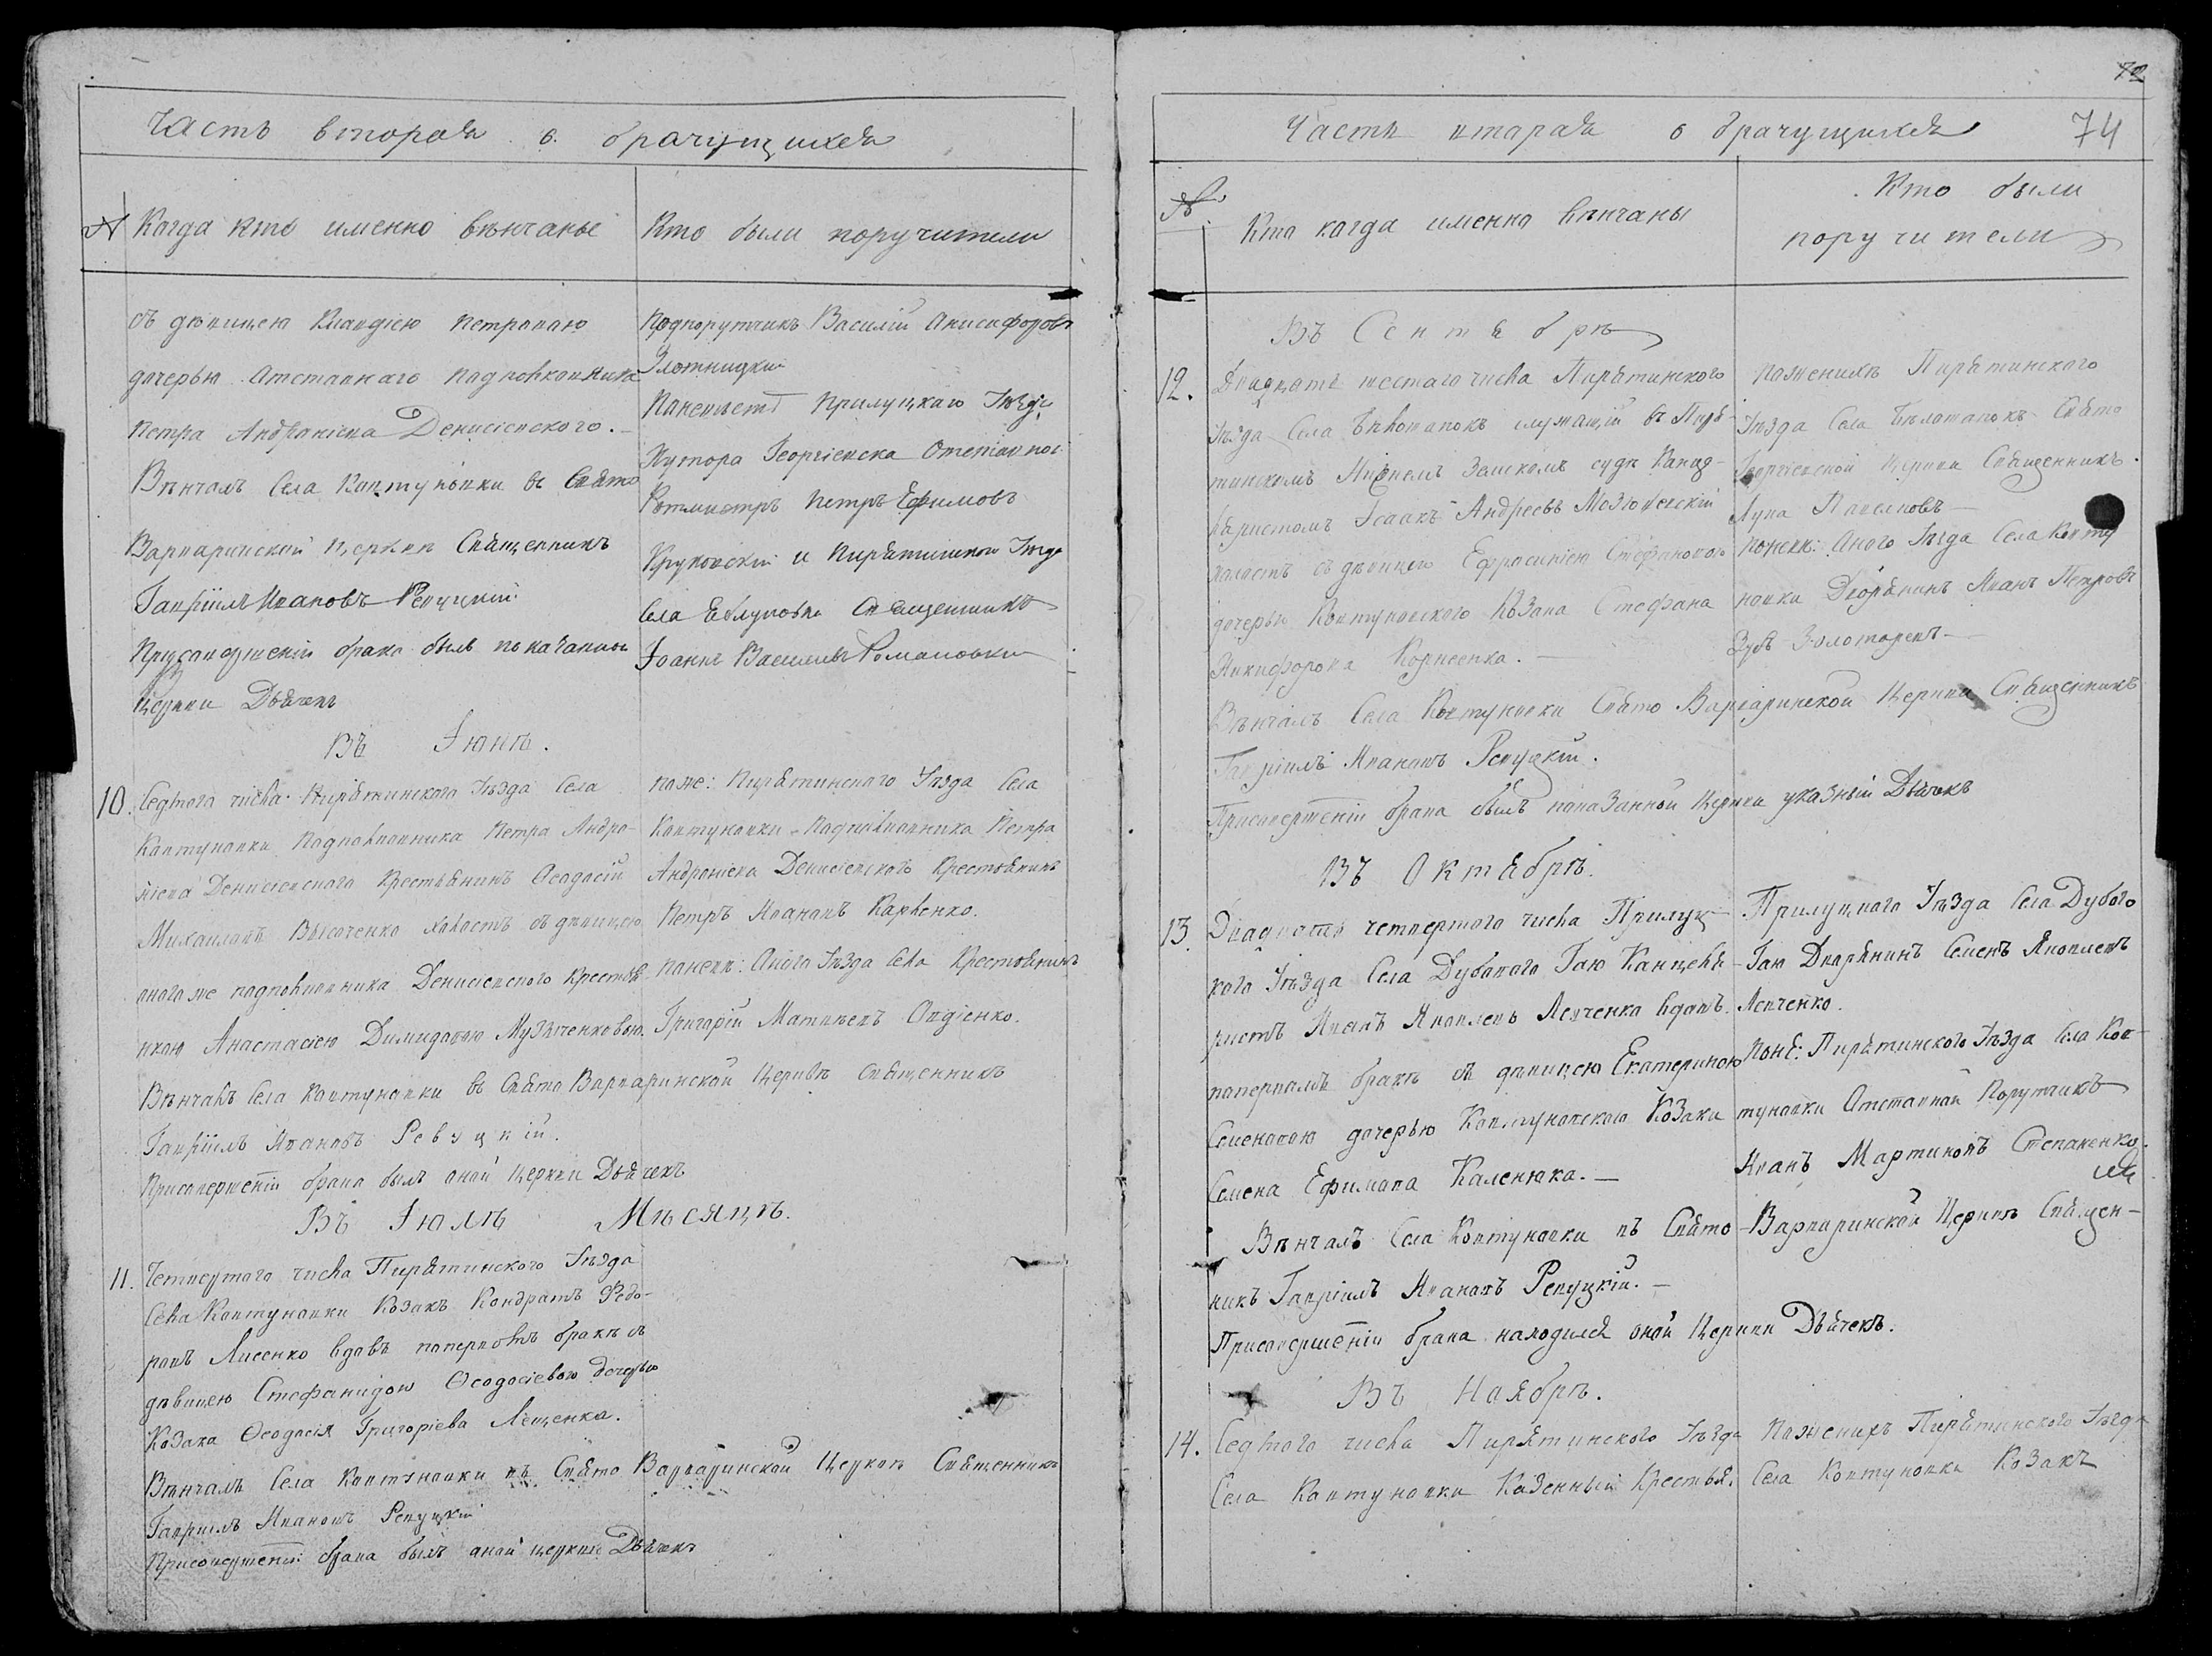 Часть вторая о брачущихся
№ Когда кто именно вѣнчаные
Кто были поручители
съ дѣвицею Клавдіею Петровною
дочерью Отставнаго Подполковника
Петра Андрвніева Денисіевского.
Вѣнчалъ Села Ковтуновки въ Свято
Варваринской Церкви Священникъ
Гавріилъ Ивановъ Ревуцкій
При совершеніи брака былъ
Церкви Дьячекъ
Подпорутчикъ Василій Онисифоровъ
Злотницкій
Прилуцкаго Уѣзда
Хутора Георгіевска Отставной
Ротмистръ Петръ Ефимовъ
Круковскій и Пирятинского Уѣзда
Села Священникъ
Іоаннъ Васильевъ Романовскій
Въ Іюнѣ.
10. Седмого числа Пирятинского Уѣзда Села
Ковтуновки Подполковника Петра Андро-
ніева Денисіевского Крестьянинъ Ѳеодосій
Михаиловъ Высоченко холостъ съ дѣвицею
оного же подполковника Денисіевского Крестья-
нкою Анастасіею Димидовою Музыченковою.
Вѣнчалъ Села Ковтуновки въ Свято Варваринской Церквѣ Священникъ
Гавріилъ Ивановъ Ревуцкій.
При совершеніи брака былъ оной Церкви Дьячекъ
по же: Пирятинского Уѣзда Села
Ковтуновки Подполковника Петра
Андроніева Денисіевского Крестьянинъ
Петръ Ивановъ Карпенко.
по невѣ: Оного Уѣзда Села Крестьянинъ
Григорій Матвѣевъ Овдіенко.
Въ Іюлѣ Мѣсяцѣ.
11. Четвертого числа Пирятинского Уѣзда
Села Ковтуновки Козакъ Кондратъ Федо-
ровъ Лисенко вдовъ поперво​мъ бракѣ съ
дѣвицею Стефанидою Ѳеодосіевою дочерью
Козака Ѳеодосія Григоріева Лещенка.
Вѣнчалъ Села Ковтуновки въ Свято Варваринской Церквѣ Священникъ
Гавріилъ Ивановъ Ревуцкій
При совершеніи брака былъ оной церкви Дьячекъ
72
Часть вторая о брачущихся 74
№ Кто когда именно вѣнчаны
Кто были
поручители
Въ Сентябрѣ
12. Двадцать шестаго числа Пирятинского
Уѣзда Села Бѣлошапокъ служащій въ Пиря-
тинскомъ Нижнемъ Земскомъ судѣ Канце-
ляристомъ Ісаакъ Андреевъ
холостъ съ дѣвицею Ефросиніею Стефановою
дочерью Ковтуновского Козака Стефана
Никифорова Корнеенка.
Вѣнчалъ Села Ковтуновки Свято Варваринской Церкви Священникъ
Гавріилъ Ивановъ Ревуцкій.
При совершеніи брака былъ показанной Церкви указный Дьячекъ
по женихѣ Пирятинского
Уѣзда Села Бѣлошапокъ Свято
Георгіевской Церкви Священникъ
Лука
по невѣ: Оного Уѣзда Села Ковту
новки Дворянинъ Иванъ Петровъ
Зубъ Золотаревъ
Въ Октябрѣ.
13. Двадцать четвертого числа Прилуц-
кого Уѣзда Села Дубового Гаю Канцеля-
ристъ Иванъ Яковлевъ Левченко вдовъ
попервомъ бракѣ съ дѣвицею Екатериною
Семеновою дочерью Ковтуновского Козака
Семена Ефимова Каленюка.
Вѣнчалъ Села Ковтуновки въ Свято-Варваринской Церквѣ Священ-
никъ Гавріилъ Ивановъ Ревуцкій.
При совершеніи брака находился оной Церкви Дьячекъ.
Прилуцкого Уѣзда Села Дубого
Гаю Дворянинъ Семенъ Яковлевъ
Левченко.
по невѣ: Пирятинского Уѣзда Села Ков-
туновки Отставной Порутчикъ
Иванъ Мартиновъ Степаненко.
Въ Наябрѣ.
14. Седмого числа Пирятинского Уѣзда
Села Ковтуновки Казенный Крестья.
По женихѣ Пирятинского Уѣзда
Села Ковтуновки Козакъ